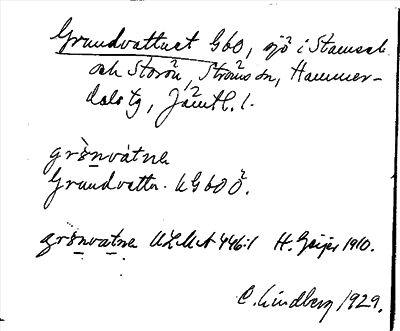 Grundvattnet GbO, sjö i Stamsele
och Storön, Ströms sn, Hammer-
dals tg, Jämtl. l.
grs̀nvátnɐ
Grundvattn. UGbOÖ.
grs̀nvatnɐ ULMA 446:1 H. Geijer 1910.
C. Lindberg 1929.